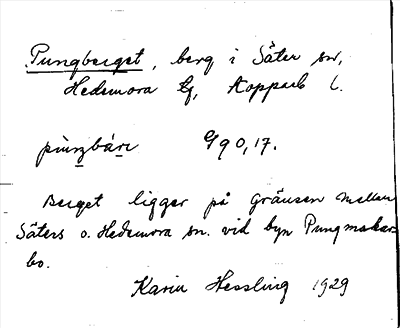 Pungberget, berg i Säter sn,
Hedemora tg, Kopparb l.
pùnbári G90,17.
Berget ligger på gränsen mellan
Säters o. Hedemora sn. vid byn Pungmakar-
bo.
Karin Hessling 1929